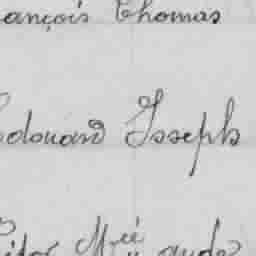 ançois Thomas
douard Joseph
M^ée aude